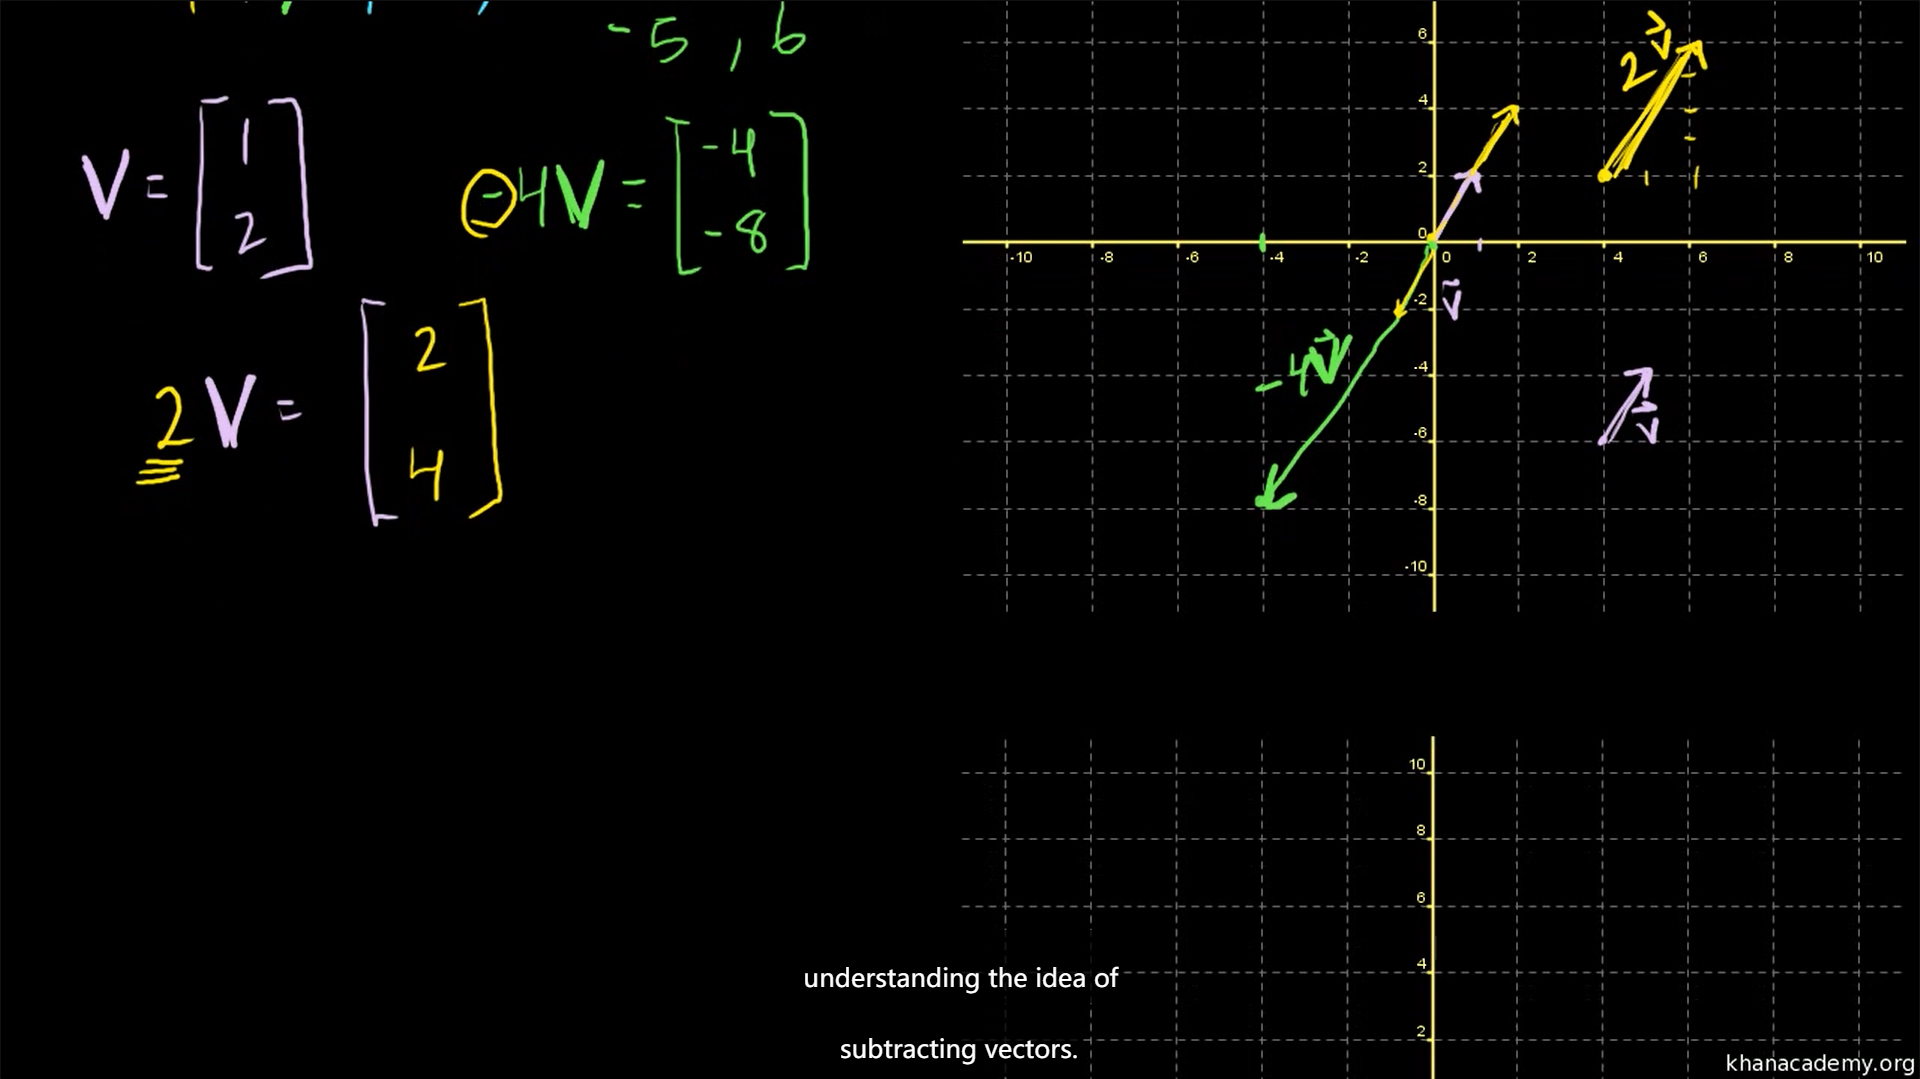 -5, 6
V = [1 2]
-4V = [-4 -8]
2V = [2 4]
6
4
2
0
-10 -8 -6 -4 -2 0 2 4 6 8 10
-2
-4
-6
-8
-10
2v
v
-4v
v
10
8
6
4
2
understanding the idea of
subtracting vectors.
khanacademy.org